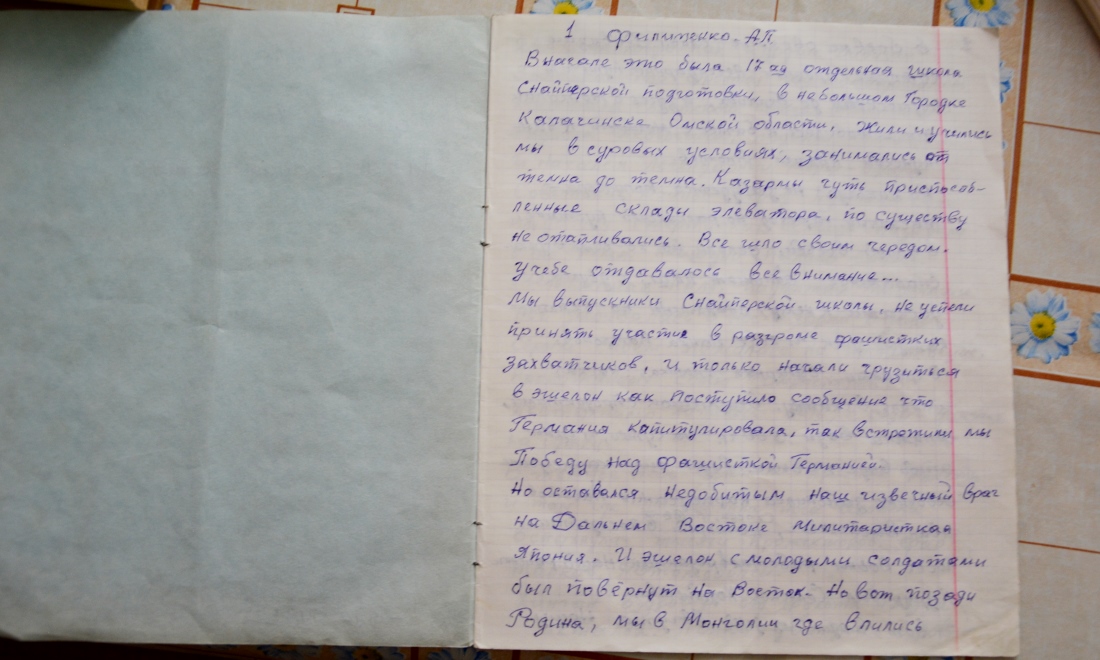 1 Филипенко. АП
Вначале это была 17ая отдельная школа
Снайперской подготовки, в небольшом Городке
Калачинске Омской области. Жили и учились
мы в суровых условиях, занимались от
темна до темна. Казармы чуть приспособ-
ленные склады элеватора, по существу
не отапливались. Все шло своим чередом.
Учебе отдавалось все внимание...
Мы выпускники Снайперской школы, не успели
принять участие в разгроме фашистких
захватчиков, и только начали грузиться
в эшелон как поступило сообщение что
Германия капитулировала, так встретили мы
Победу над фашисткой Германией.
Но оставался недобитым наш извечный враг
на Дальнем Востоке милитаристкая
Япония. И эшелон с молодыми солдатами
был повёрнут на Восток. Но вот позади
Родина, мы в Монголии где влились